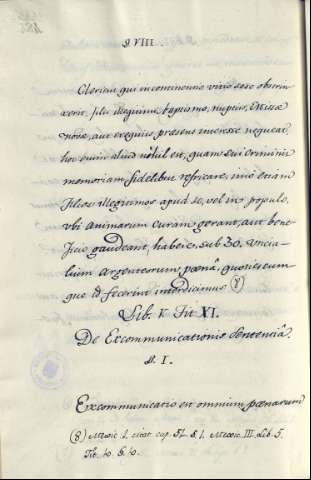 §. VIII.
Clericus qui incontinentiæ vitio sese obstrinxerit, filii illegitimi baptismo, nuptiis, Missæ
novæ, aut exequiis præsens interesse nequeat
hoc enim aliud nihil est, quam sui criminis
memoriam fidelibus refricare, imò etiam
filios illegitimos apud se, vel in populo,
ubi animarum curam gerant, aut bene
ficio gaudeant, habere, sub 30. uncia
lium argenteorum pœnâ, quotiescum
que id fecerint interdicimus (8)
Lib. V. Tit XI.
De Excommunicationis Sententiâ.
§. I.
Excommunicatio est omnium pœnarum
(8) Mexic. I. citat cap. 51. §. 1. Mexic. III. Lib. 5.
Tit. 10. §. 10.